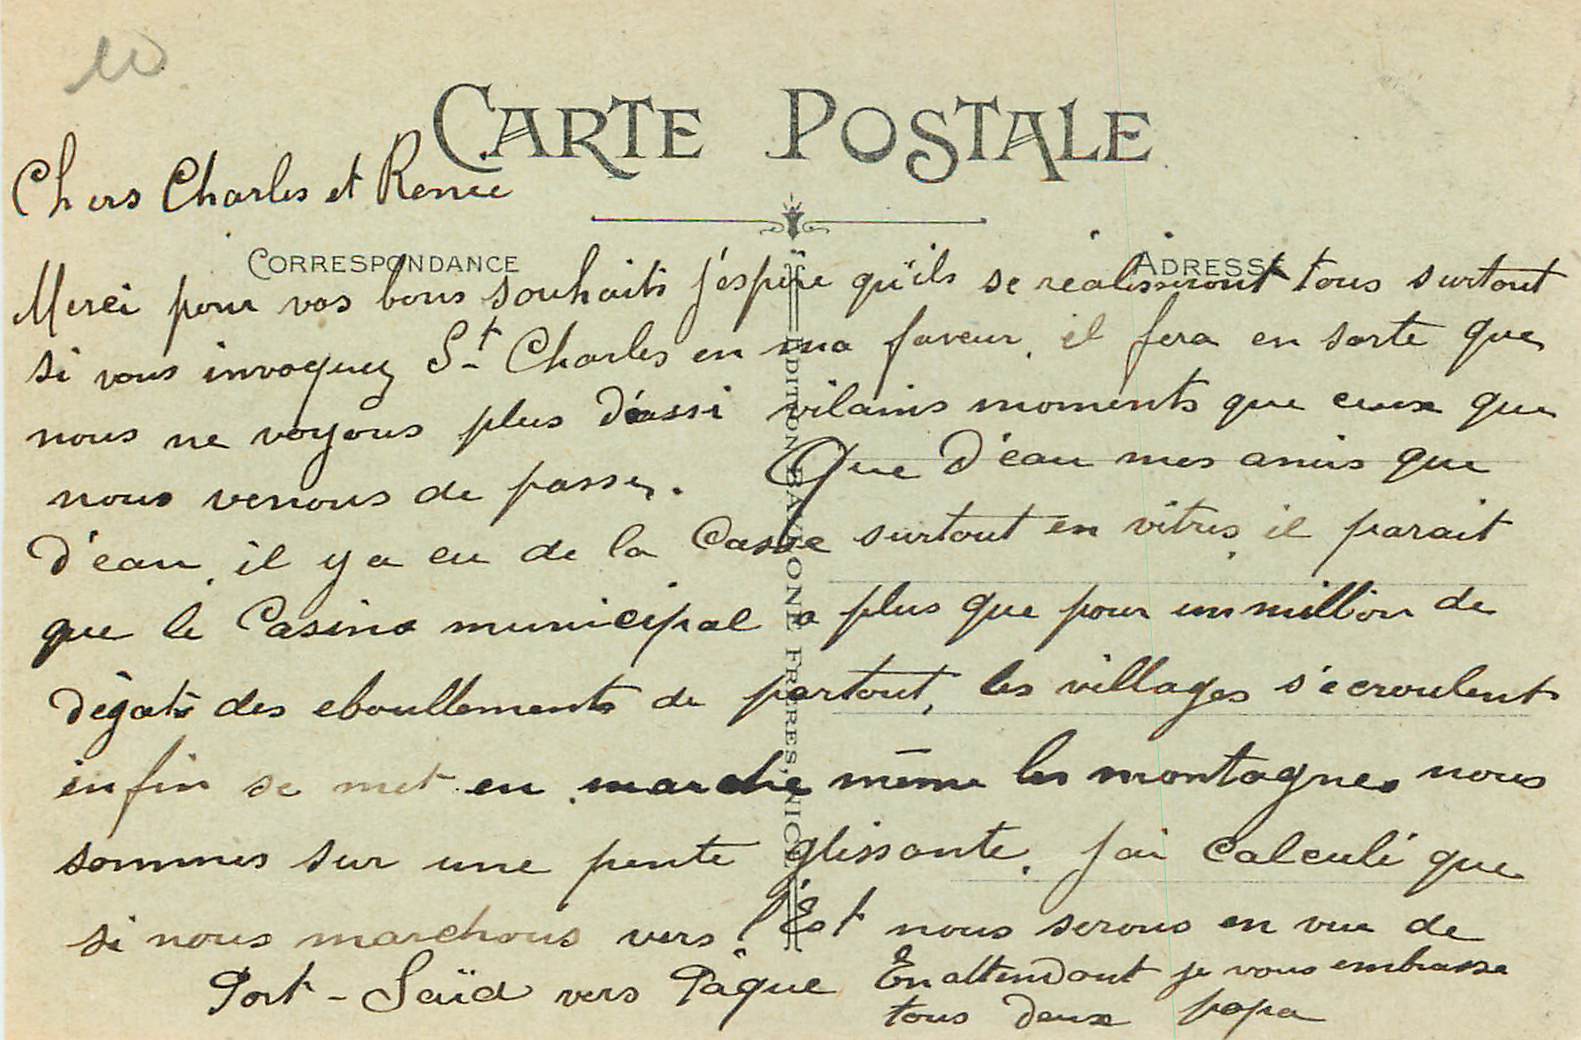 10
CARTE POSTALE
Chers Charles et Renée
CORRESPONDANCE
ADRESSE
Merci pour vos bons souhaits j'espère qu'ils se réalisseront tous surtout
si vous invoquez St. Charles en ma faveur, il fera en sorte que
nous ne voyons plus d'aussi vilains moments que ceux que
nous venons de passer. Que d'eau mes amis que
d'eau, il y a eu de la Casse surtout en vitres, il parait
que le Casino municipal a plus que pour un million de
dégats des eboullements de partout, les villages s'écroulent
enfin se met en marche même les montagnes nous
sommes sur une pente glissante. J'ai calculé que
si nous marchons vers l'Est nous serons en vue de
Port-Saïd vers Pâque En attendant je vous embrasse
tous deux papa
EDITION BAYLONE FRERES, NICE